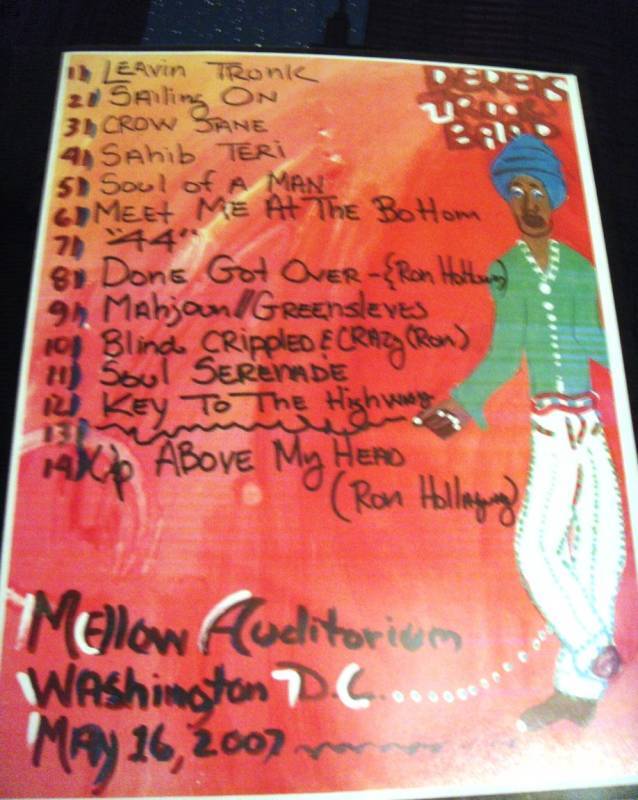 DEREK
TRUCKS
BAND
1) LEAVIN TRONK
2) SAiling ON
3) CROW JANE
4) SAhib TERi
5) Soul of A MAN
6) MEEt ME At The Bottom
7) "44"
8) DONE Got OVER - {(Ron Holloway)
9) MAhjoun//GREENSlEVES
10) Blind CRippLED & CRAzy (Ron)
11) Soul SERENADE
12) KEY To The Highway
13)
14) Up ABOVE My HEAD
(Ron Holloway)
MEllow Auditorium
WAShington D.C.
MAy 16, 2007